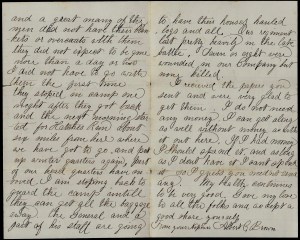 and a great many of the
men did not have their blan
kets or overcoats with them
they did not expect to be gone
more than a day or two
I did not have to go with
them the first time.
they stayed in camp one
night after they got back
and the next morning star
ted for Hatchers Run about
nine miles from here where
we have got to go, and put
up winter quarters again. Part
of our head quarters have mo
ved. I am staying back to
guard the camp until
they can get all the baggage
away. the General and a
part of his staff are going
to have their houses hauled
logs and all. Our regiment
lost pretty heavily in the late
battle. I own eight were
wounded in our Company but
none killed.
I received the papers you
sent and were very glad to
get them. I do not need
any money. I can get along
as well without money as with
it out here. If I had money
I should spend it and as long
as I dont have it I cant spend
it so I guess you need not send
any. My health continues
to be very good. Give my love
to all the folks and accept a
good share yourself
From your Nephew Albert C Brown